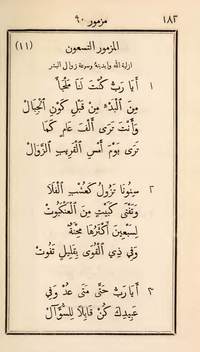 ١٨٢ مزمور ٩٠
المزمور التسعون (١١)
ازلية الله وابديته وسرعة زوال البشر
١ أَيَا رَبُّ كُنْتَ لَنَا مَلْجَأً
مِنَ الْبَدْءِ مِنْ قَبْلِ كَوْنِ الْجِبَالْ
وَأَنْتَ تَرَى أَلْفَ عَامٍ كَمَا
تَرَى يَوْمَ أَمْسِ الْقَرِيبَ الزَّوَالْ
٢ سِنُونَا تَزُولُ كَعُشْبِ الْفَلَا
وَتَفْنَى كَبَيْتٍ مِنَ الْعَنْكَبُوتْ
لِسَبْعِينَ أَكْثَرُهَا مِحْنَةٌ
وَفِي ذِي الْقُوَى بِقَلِيلٍ تَفُوتْ
٣ أَيَا رَبُّ حَتَّى مَتَى عُدْ وَفِي
عَبِيدِكَ كُنْ قَابِلًا لِلسُّؤَالْ